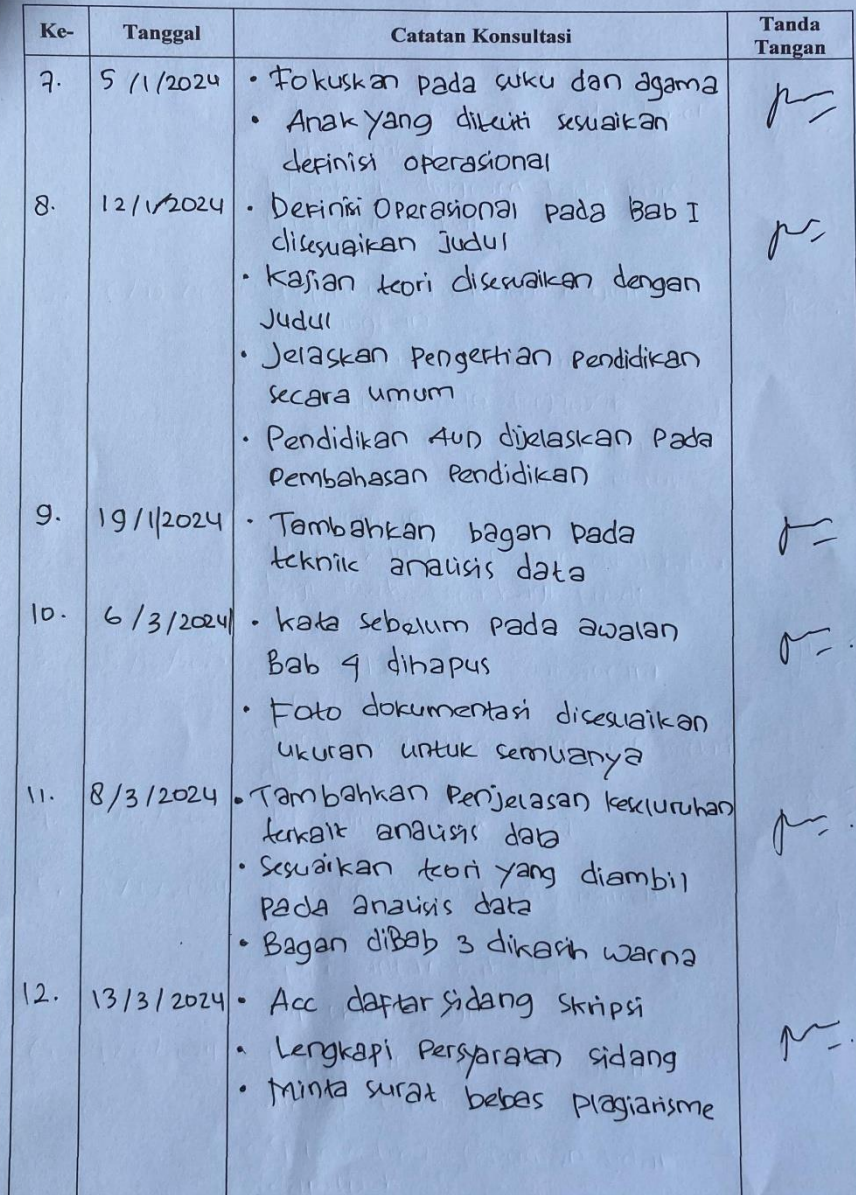 Ke- Tanggal Catatan Konsultasi Tanda Tangan
7. 5/1/2024 • Fokuskan pada suku dan agama
• Anak yang diteliti sesuaikan
definisi operasional
8. 12/1/2024 • Definisi Operasional pada Bab I
disesuaikan judul
• Kajian teori disesuaikan dengan
Judul
• Jelaskan Pengertian Pendidikan
secara umum
• Pendidikan AUD dijelaskan Pada
Pembahasan Pendidikan
9. 19/1/2024 • Tambahkan bagan pada
teknik analisis data
10. 6/3/2024 • Kata sebelum pada awalan
Bab 4 dihapus
• Foto dokumentasi disesuaikan
ukuran untuk semuanya
11. 8/3/2024 • Tambahkan Penjelasan keseluruhan
terkait analisis data
• Sesuaikan teori yang diambil
pada analisis data
• Bagan diBab 3 dikasih warna
12. 13/3/2024 • Acc daftar sidang skripsi
• Lengkapi Persyaratan sidang
• Minta surat bebas plagiarisme